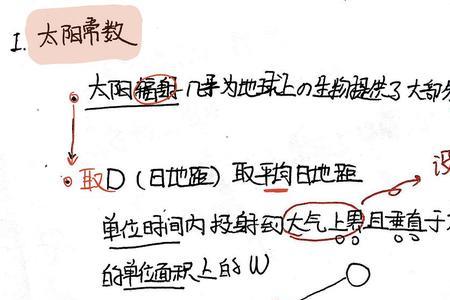 I. 太阳常数
太阳辐射几乎为地球上の生物提供了大部
取D（日地距）取平均日地距
单位时间内投射到大气上界且垂直于
的单位面积上的W